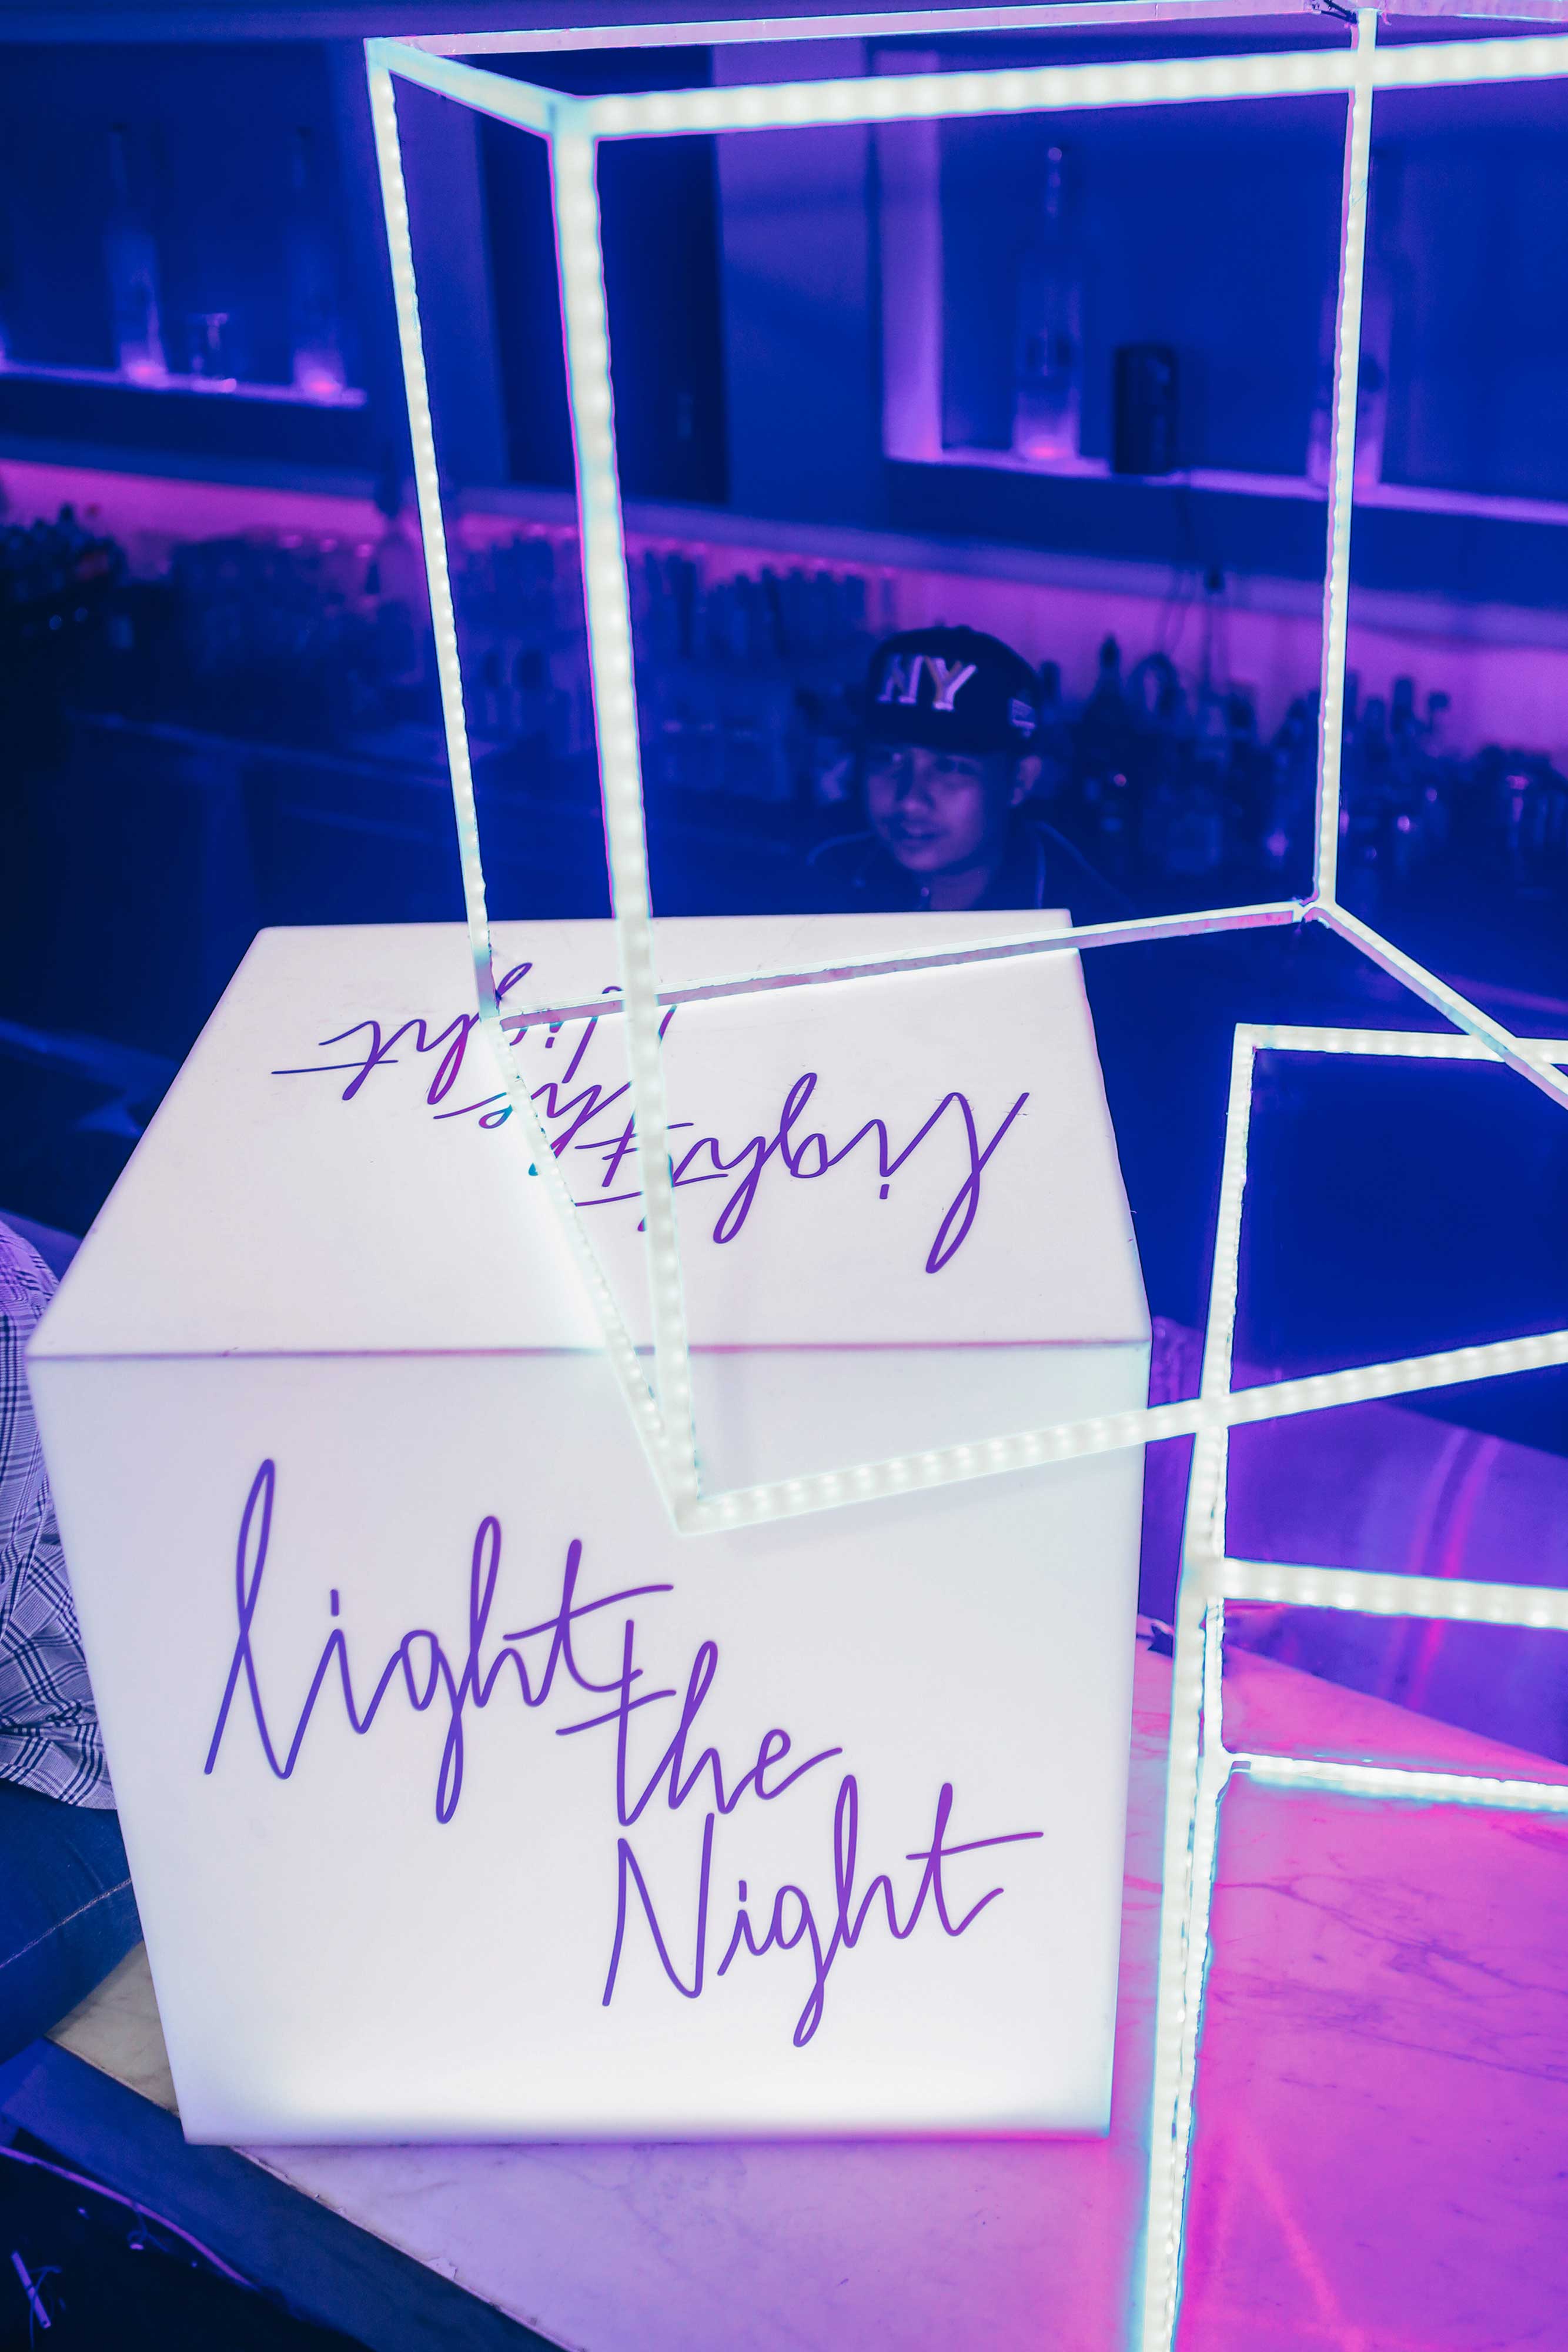 NY
light
the
Night
light
the
Night